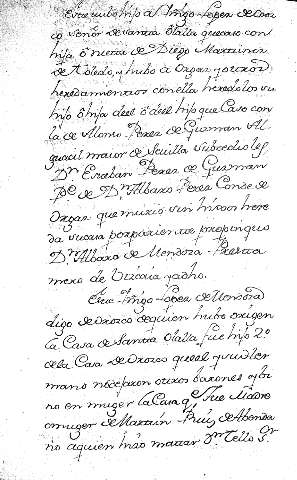 Este tubo hijo a Iñigo Lopez de Oroz
co Señor de santa olalla que caso con
hija o nieta de Diego Martinez
de Toledo, y hubo a Orgaz y otros
heredamientos con ella heredolos su
hijo o hija deel o del hijo que Caso con
la de Alonso Perez de Gusman Al
guacil maior de Sevilla subcedioles
Dn Esteban Perez de Gusman
Pe de Dn Albaro Perez Conde de
Orgaz que murio sin hijos here
da suCasa por pariente propinquo
Dn Albaro de Mendoza Presta
mero de Vizcaia yadho.
Este Iñigo Lopez de Mendoza
digo de Orozco de quien hubo origen
la Casa de Santa Olalla fue hijo 2o
de la Casa de Orozco que el y su her
mano no dejaron otros barones y bi
no en muger la Casa qe fue Madre
o muger de Martin Ruiz de Abenda
ño a quien hizo matar Dn Tello Sr